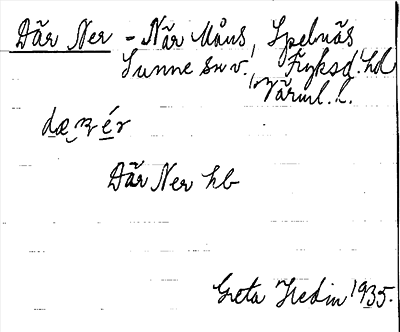 Där Ner - När Måns, Spelnäs
Sunne sn v. Fryksd. hd
Värml. l.
Där Ner hb
Greta Hedin 1935.